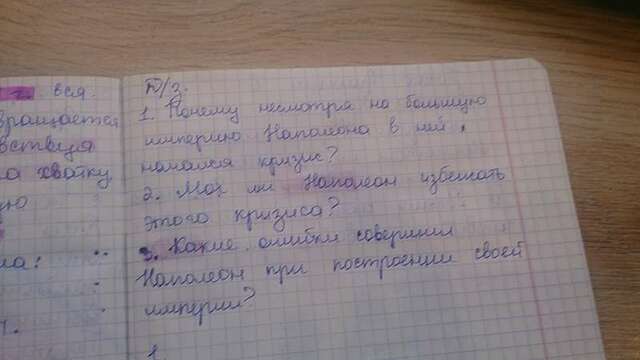 вращается
хватку
Д/з.
1. Почему несмотря на большую
империю Наполеона в ней,
начался кризис?
2. Мог ли Наполеон избежать
этого кризиса?
3. Какие ошибки совершил
Наполеон при построении своей
империи?